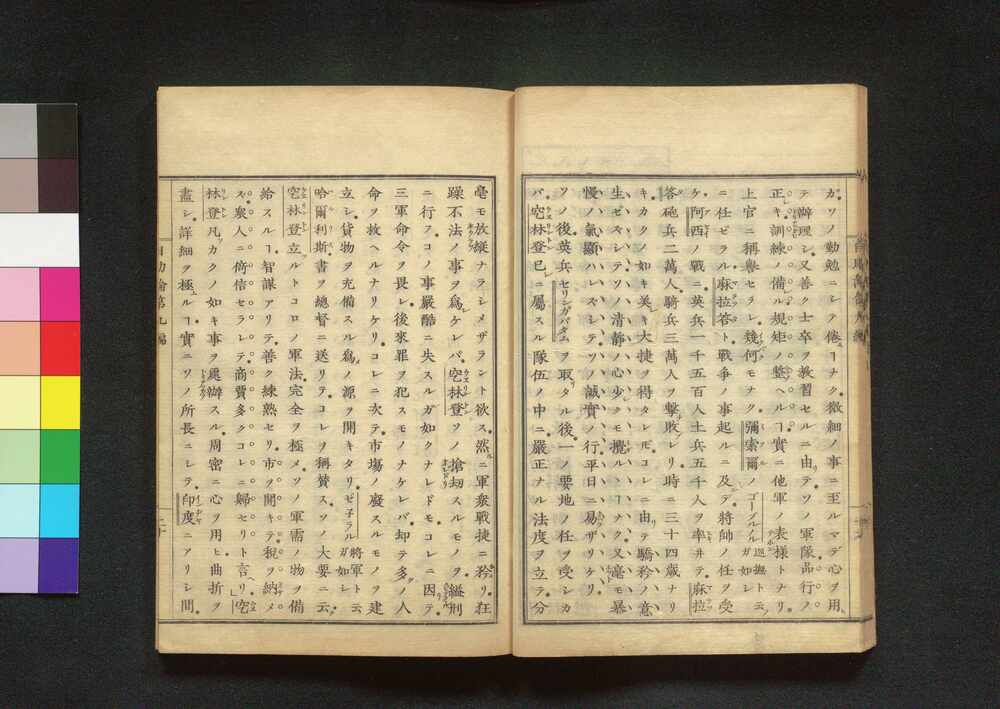 ガソノ勤勉ニシテ倦ヿナク微細ノ事ニ至ルマデ心ヲ用
テ辦理シ又善ク士卒ヲ教習セルニ由テソノ軍隊品行ノ
正キ訓練ノ備ル規矩ノ整ヘルヿ實ニ他軍ノ表樣トナリ
上官ニ稱譽セラレ幾何モナク彌索爾ノゴーブルノル巡撫ト云フガ如シ
ニ任ゼラル麻拉答ト戰爭ノ事起ルニ及デ將帥ノ任ヲ受
ケ阿西ノ戰ニ英兵一千五百人土兵五千人ヲ率井テ麻拉
答砲兵二萬人騎兵三萬人ヲ擊敗レリ時ニ三十四歲ナリ
キカクノ如キ美キ大捷ヲ得タレ𪜈コレニ由テ驕矜ノ意
生ゼズシテソノ清静ノ心少シモ攪ルヽヿナク又毫モ暴
慢ノ氣顯ハレズシテソノ誠實ノ行平日ニ易ザリケリ
ソノ後英兵セリンガパタムヲ取タル後一ノ要地ノ任ヲ受シカ
バ空林登已ニ屬スル隊伍ノ中ニ嚴正ナル法度ヲ立テ分
毫モ放縱ナラシメザラント欲ス然ニ軍衆戰捷ニ矜リ狂
躁不法ノ事ヲ為ケレバ空林登ソノ搶刧スルモノヲ縊刑
ニ行フコノ事嚴酷ニ失スルガ如クナレドモコレニ因テ
三軍命令ヲ畏レ後來罪ヲ犯スモノナケレバ却テ多ノ人
命ヲ救ヘルナリケリコレニ次テ市場ノ廢スルモノヲ建
立シ貨物ヲ充備スル為ノ源ヲ開キタリゼ子ラル將軍ト云フガ如シ
哈爾利斯書ヲ總督ニ送リテコレヲ稱賛スソノ大要ニ云
空林登立ルトコロノ軍法完全ヲ極メソノ軍需ノ物ヲ備
給スルヿ智謀アリテ善ク練熟セリ市ヲ開キテ稅ヲ納メ
ズ衆人ニ倚信セラレテ商賈多クコレニ歸セリト言リ空
林登凡カクノ如キ事ヲ處辦スル周密ニ心ヲ用ヒ曲折ヲ
盡シ詳細ヲ極ルヿ實ニソノ所長ニシテ印度ニアリシ間